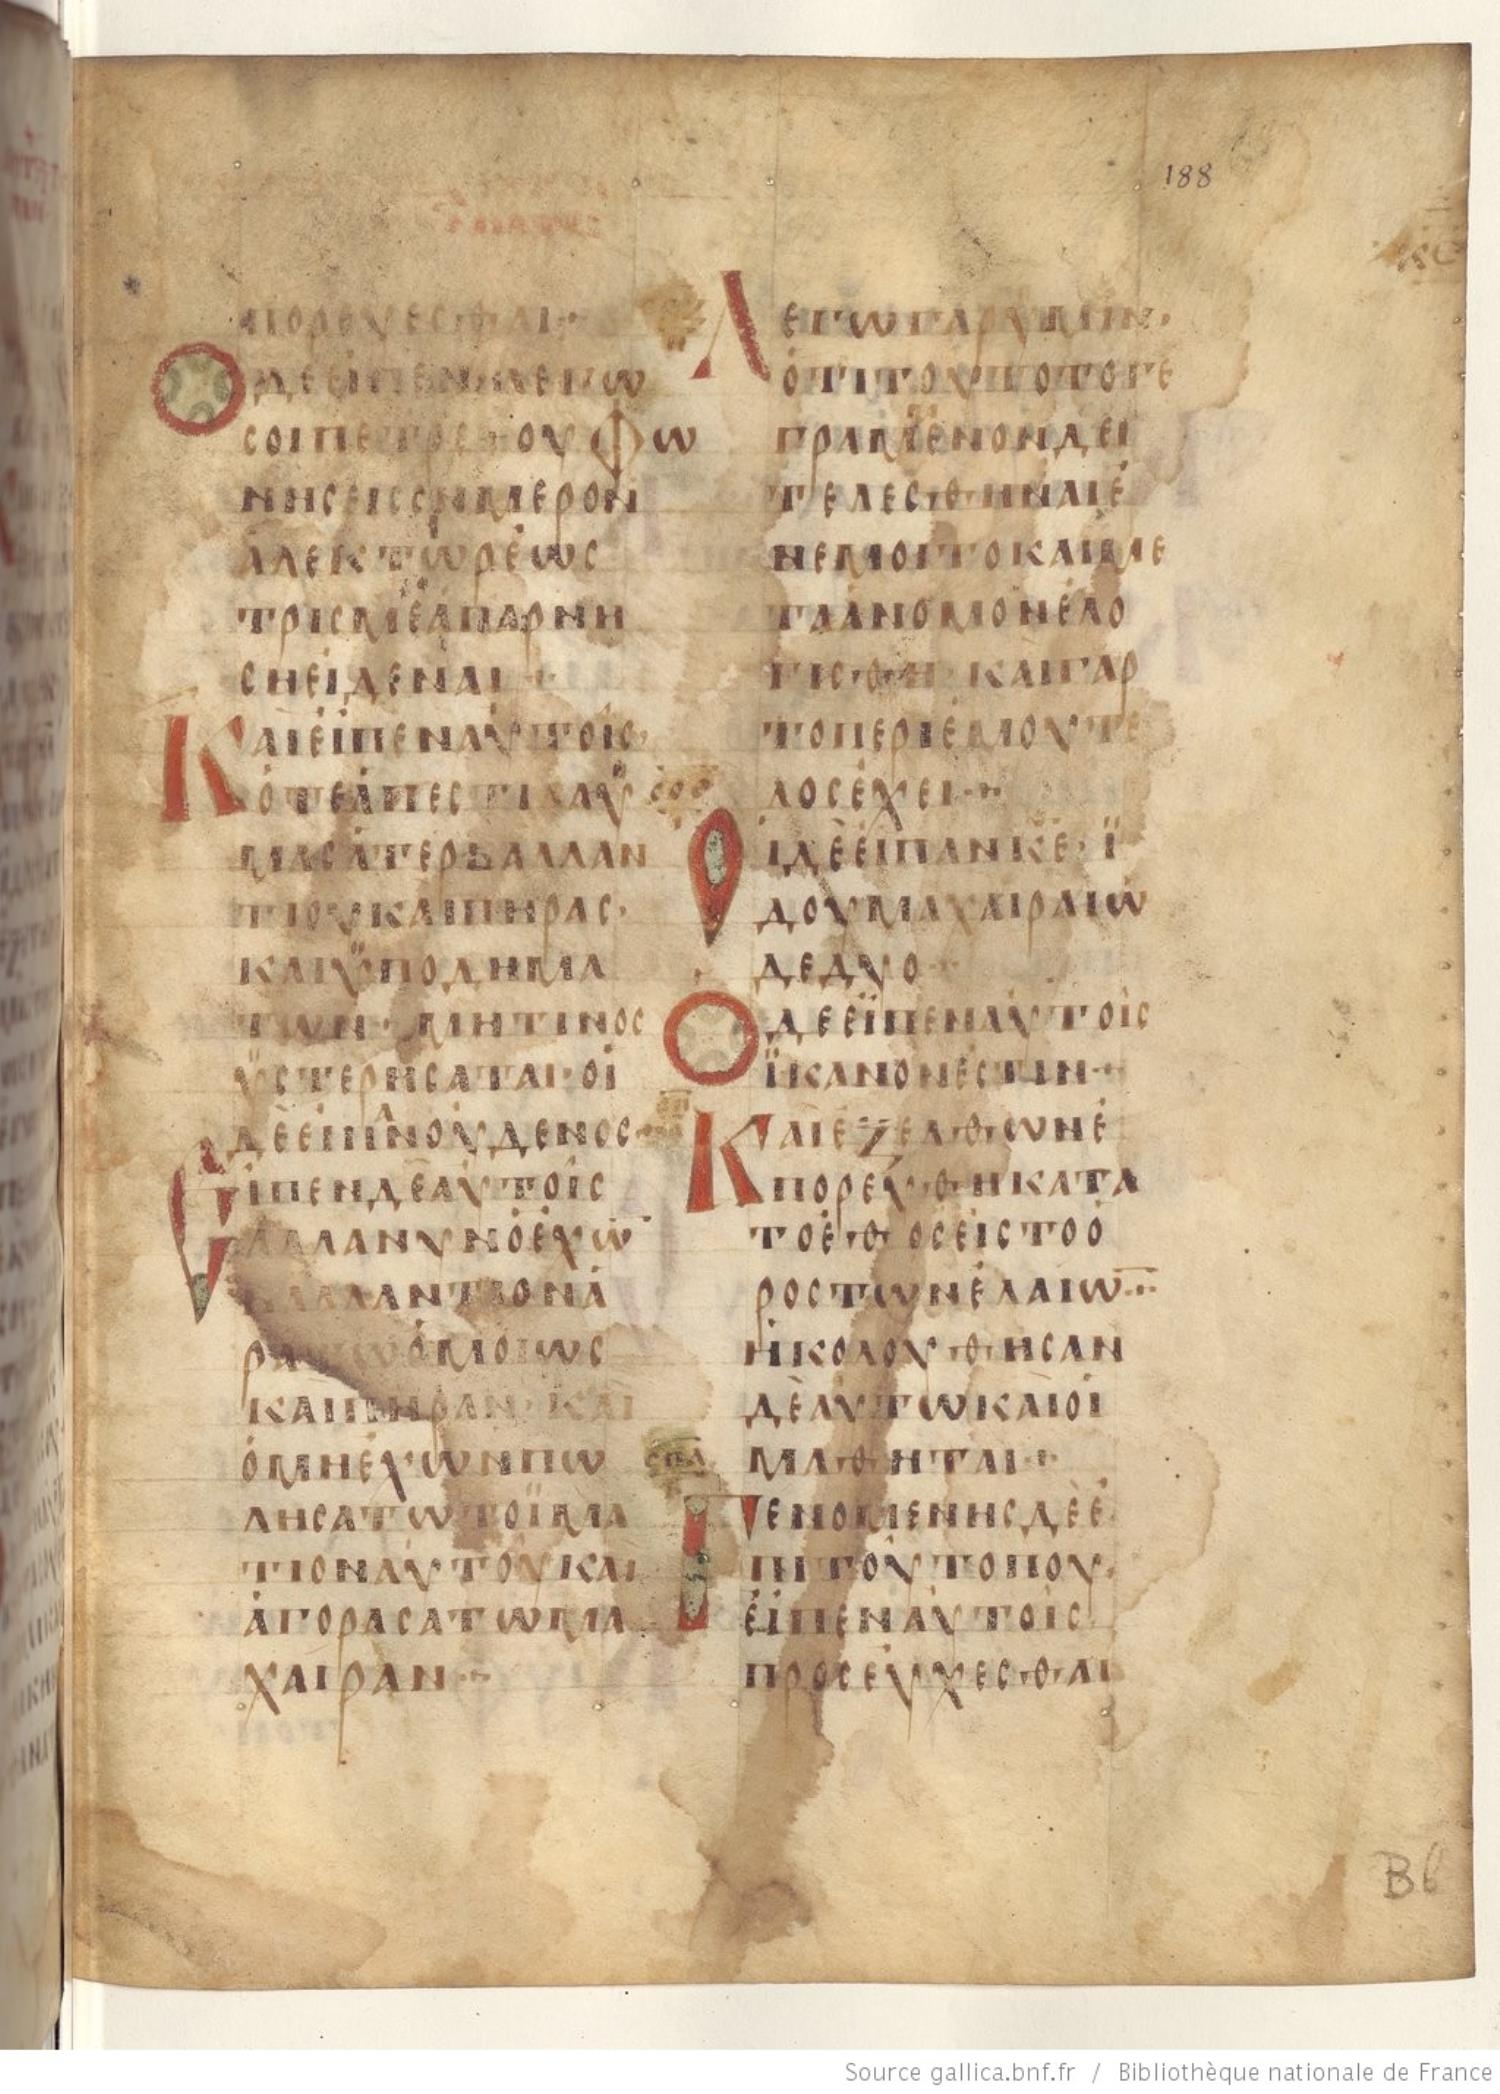 188
ΠΟΡΕΥΕCΘΑΙ··
ΟΔΕΕΙΠΕΝΛΕΓΩ
CΟΙΠΕΤΡΕ·ΟΥΦΩ
ΝΗCΕΙCCΗΜΕΡΟΝ
ΑΛΕΚΤΩΡΕΩC
ΤΡΙCΜΕΑΠΑΡΝΗ
CΗΕΙΔΕΝΑΙ··
ΚΑΙΕΙΠΕΝΑΥΤΟΙC·
ΟΤΕΑΠΕCΤΙΛΑΫ
ΜΑCΑΤΕΡΒΑΛΛΑΝ
ΤΙΟΥΚΑΙΠΗΡΑC·
ΚΑΙΫΠΟΔΗΜΑ
ΤΩΝ· ΜΗΤΙΝΟC
ΫCΤΕΡΗCΑΤΑΙ·ΟΙ
ΔΕΕΙΠΝΟΥΔΕΝΟC·
ΕΙΠΕΝΔΕΑΥΤΟΙC
ΑΛΛΑΝΥΝΟΕΧΩ̅
ΒΑΛΛΑΝΤΙΟΝΑ
ΡΑΤΩΟΜΟΙΩC
ΚΑΙΠΗΡΑΝ· ΚΑΙ
ΟΜΗΕΧΩΝΠΩ
ΛΗCΑΤΩΤΟΪΜΑ
ΤΙΟΝΑΥΤΟΥΚΑΙ
ΑΓΟΡΑCΑΤΩΜΑ
ΧΑΙΡΑΝ··
ΛΕΓΩΓΑΡΥΜΙΝ·
ΟΤΙΤΟΥΤΟΤΟΓΕ
ΓΡΑΜΜΕΝΟΝΔΕΙ
ΤΕΛΕCΘΗΝΑΙΕ
ΝΕΜΟΙΤΟΚΑΙΜΕ
ΤΑΑΝΟΜΟΝΕΛΟ
ΓΙCΘΗ· ΚΑΙΓΑΡ
ΤΟΠΕΡΙΕΜΟΥΤΕ
ΛΟCΕΧΕΙ··
ΟΙΔΕΕΙΠΑΝΚΕ·Ϊ
ΔΟΥΜΑΧΑΙΡΑΙΩ
ΔΕΔΥΟ·
ΟΔΕΕΙΠΕΝΑΥΤΟΙC
ΪΚΑΝΟΝΕCΤΙΝ··
ΚΑΙΕΖΕΛΘΩΝΕ
ΠΟΡΕΥΘΗΚΑΤΑ
ΤΟΕΘΟCΕΙCΤΟΟ
ΡΟCΤΩΝΕΛΑΙΩ̅··
ΗΚΟΛΟΥΘΗCΑΝ
ΔΕΑΥΤΩΚΑΙΟΙ
ΜΑΘΗΤΑΙ··
CΠΑ
ΓΕΝΟΜΕΝΗCΔΕΕ
ΠΙΤΟΥΤΟΠΟΥ·
ΕΙΠΕΝΑΥΤΟΙC
ΠΡΟCΕΥΧΕCΘΑΙ
Source gallica.bnf.fr / Bibliothèque nationale de France